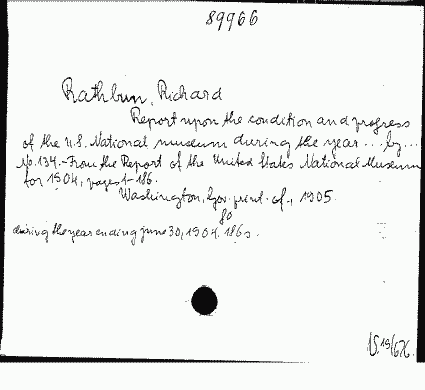 89966
Rathbun, Richard
Report upon the condition and progress
of the U.S. National museum during the year... by...
No.134.-From the Report of the United States National Museum
for 1904, pages 1-186.
Washington, Gov. print. of., 1905.
8o
during the year ending june 30, 1904. 186 s.